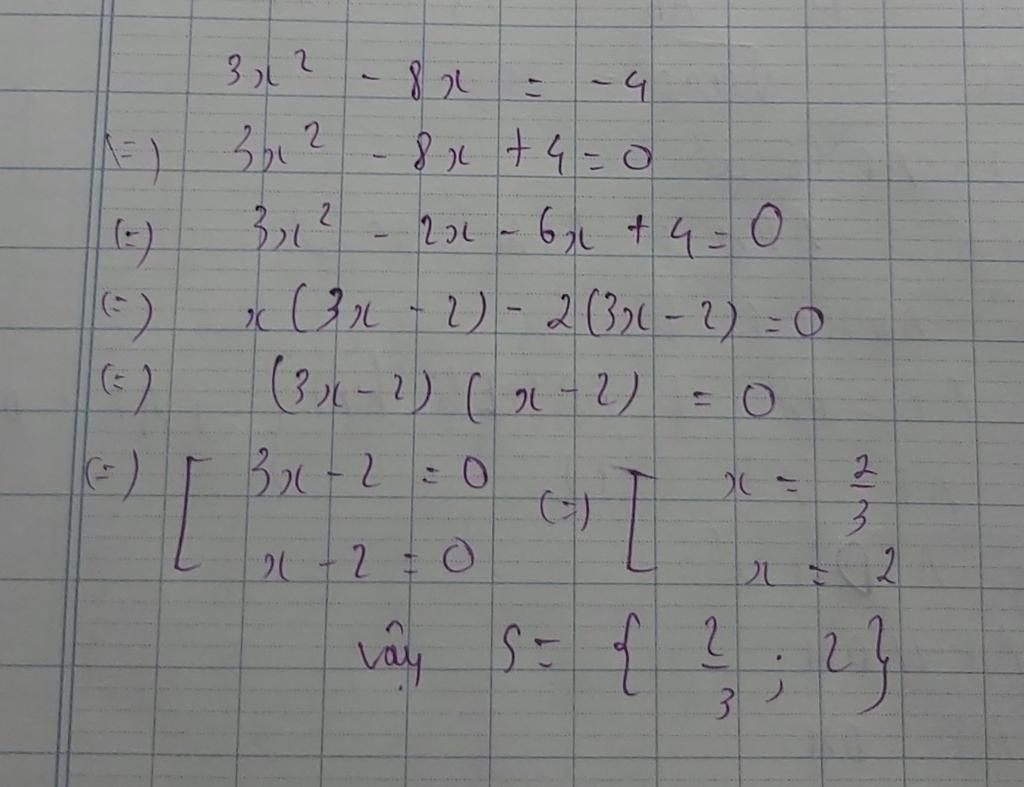 3x² - 8x = -4
(=) 3x² - 8x + 4 = 0
(=) 3x² - 2x - 6x + 4 = 0
(=) x(3x - 2) - 2(3x - 2) = 0
(=) (3x - 2)(x - 2) = 0
(=) [ 3x - 2 = 0 (=) [ x = 2/3
x - 2 = 0 x = 2
vậy S = { 2/3 ; 2 }